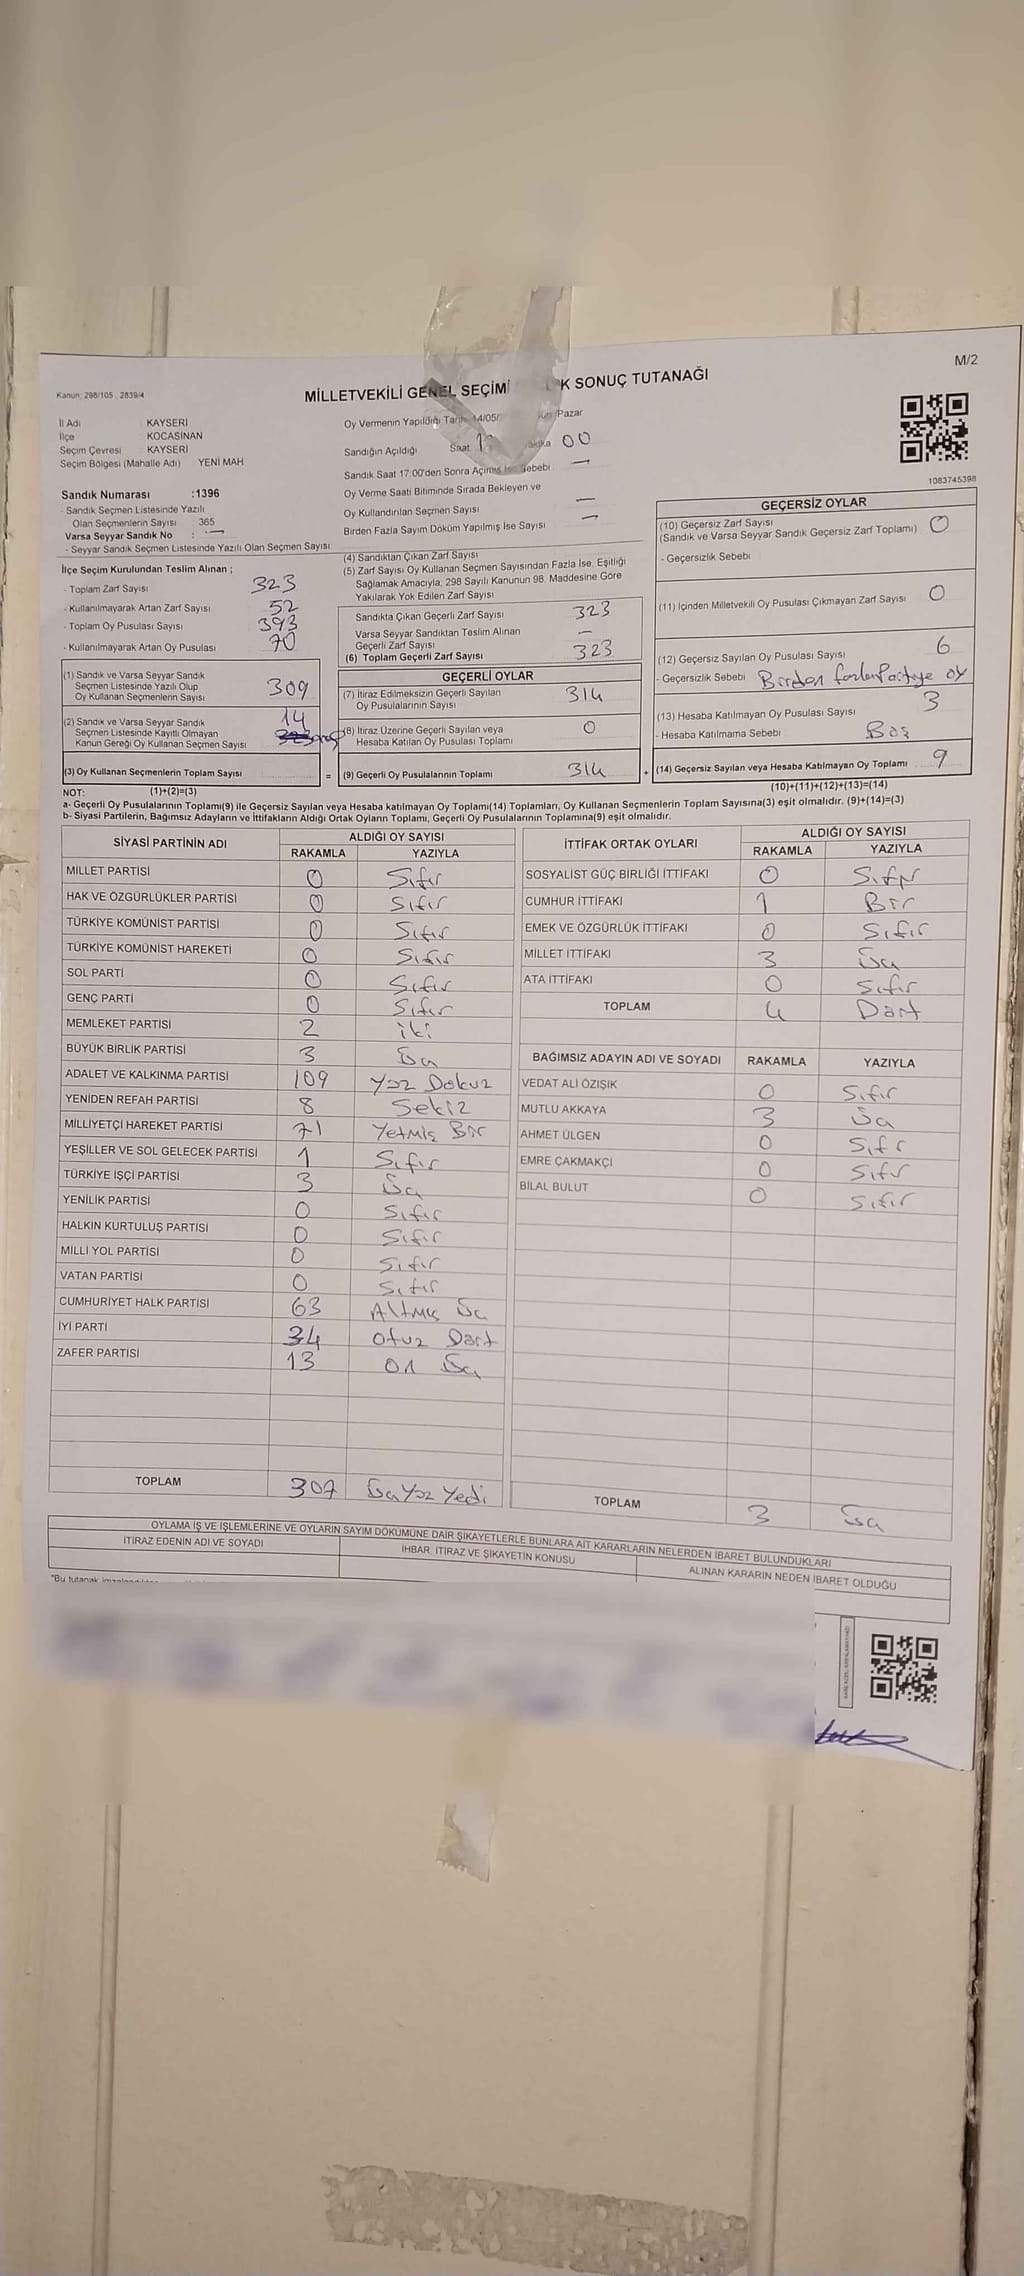 M/2
Kanun: 298/105 , 2839/4
MİLLETVEKİLİ GENEL SEÇİMİ K SONUÇ TUTANAĞI
İl Adı : KAYSERİ
İlçe : KOCASİNAN
Seçim Çevresi : KAYSERİ
Seçim Bölgesi (Mahalle Adı) YENİ MAH
Sandık Numarası :1396
- Sandık Seçmen Listesinde Yazılı
Olan Seçmenlerin Sayısı : 365
Varsa Seyyar Sandık No : —
- Seyyar Sandık Seçmen Listesinde Yazılı Olan Seçmen Sayısı
Oy Vermenin Yapıldığı 14/05/ /Pazar
Sandığın Açıldığı Saat: 00
Sandık Saat 17:00'den Sonra Açılmış İse Sebebi —
Oy Verme Saati Bitiminde Sırada Bekleyen ve
Oy Kullandırılan Seçmen Sayısı —
Birden Fazla Sayım Döküm Yapılmış İse Sayısı —
1083745398
İlçe Seçim Kurulundan Teslim Alınan ;
- Toplam Zarf Sayısı 323
- Kullanılmayarak Artan Zarf Sayısı 52
- Toplam Oy Pusulası Sayısı 393
- Kullanılmayarak Artan Oy Pusulası 70
(1) Sandık ve Varsa Seyyar Sandık
Seçmen Listesinde Yazılı Olup
Oy Kullanan Seçmenlerin Sayısı 309
(2) Sandık ve Varsa Seyyar Sandık
Seçmen Listesinde Kayıtlı Olmayan
Kanun Gereği Oy Kullanan Seçmen Sayısı 14
(3) Oy Kullanan Seçmenlerin Toplam Sayısı =
(4) Sandıktan Çıkan Zarf Sayısı
(5) Zarf Sayısı Oy Kullanan Seçmen Sayısından Fazla İse, Eşitliği
Sağlamak Amacıyla, 298 Sayılı Kanunun 98. Maddesine Göre
Yakılarak Yok Edilen Zarf Sayısı
Sandıkta Çıkan Geçerli Zarf Sayısı 323
Varsa Seyyar Sandıktan Teslim Alınan
Geçerli Zarf Sayısı —
(6) Toplam Geçerli Zarf Sayısı 323
GEÇERLİ OYLAR
(7) İtiraz Edilmeksizin Geçerli Sayılan
Oy Pusulalarının Sayısı 314
(8) İtiraz Üzerine Geçerli Sayılan veya
Hesaba Katılan Oy Pusulası Toplamı 0
(9) Geçerli Oy Pusulalarının Toplamı 314 +
GEÇERSİZ OYLAR
(10) Geçersiz Zarf Sayısı
(Sandık ve Varsa Seyyar Sandık Geçersiz Zarf Toplamı) 0
- Geçersizlik Sebebi
(11) İçinden Milletvekili Oy Pusulası Çıkmayan Zarf Sayısı 0
(12) Geçersiz Sayılan Oy Pusulası Sayısı 6
- Geçersizlik Sebebi Birden fazla Partiye oy
(13) Hesaba Katılmayan Oy Pusulası Sayısı 3
- Hesaba Katılmama Sebebi Boş
(14) Geçersiz Sayılan veya Hesaba Katılmayan Oy Toplamı 9
NOT: (1)+(2)=(3) (10)+(11)+(12)+(13)=(14)
a- Geçerli Oy Pusulalarının Toplamı(9) ile Geçersiz Sayılan veya Hesaba katılmayan Oy Toplamı(14) Toplamları, Oy Kullanan Seçmenlerin Toplam Sayısına(3) eşit olmalıdır. (9)+(14)=(3)
b- Siyasi Partilerin, Bağımsız Adayların ve İttifakların Aldığı Ortak Oyların Toplamı, Geçerli Oy Pusulalarının Toplamına(9) eşit olmalıdır.
SİYASİ PARTİNİN ADI ALDIĞI OY SAYISI
RAKAMLA YAZIYLA
MİLLET PARTİSİ 0 Sıfır
HAK VE ÖZGÜRLÜKLER PARTİSİ 0 Sıfır
TÜRKİYE KOMÜNİST PARTİSİ 0 Sıfır
TÜRKİYE KOMÜNİST HAREKETİ 0 Sıfır
SOL PARTİ 0 Sıfır
GENÇ PARTİ 0 Sıfır
MEMLEKET PARTİSİ 2 iki
BÜYÜK BİRLİK PARTİSİ 3 Üç
ADALET VE KALKINMA PARTİSİ 109 Yüz Dokuz
YENİDEN REFAH PARTİSİ 8 Sekiz
MİLLİYETÇİ HAREKET PARTİSİ 71 Yetmiş Bir
YEŞİLLER VE SOL GELECEK PARTİSİ 1 Sıfır
TÜRKİYE İŞÇİ PARTİSİ 3 Üç
YENİLİK PARTİSİ 0 Sıfır
HALKIN KURTULUŞ PARTİSİ 0 Sıfır
MİLLİ YOL PARTİSİ 0 Sıfır
VATAN PARTİSİ 0 Sıfır
CUMHURİYET HALK PARTİSİ 63 Altmış Üç
İYİ PARTİ 34 Otuz Dört
ZAFER PARTİSİ 13 On Üç
TOPLAM 307 Üç Yüz Yedi
İTTİFAK ORTAK OYLARI ALDIĞI OY SAYISI
RAKAMLA YAZIYLA
SOSYALİST GÜÇ BİRLİĞİ İTTİFAKI 0 Sıfır
CUMHUR İTTİFAKI 1 Bir
EMEK VE ÖZGÜRLÜK İTTİFAKI 0 Sıfır
MİLLET İTTİFAKI 3 Üç
ATA İTTİFAKI 0 Sıfır
TOPLAM 4 Dört
BAĞIMSIZ ADAYIN ADI VE SOYADI RAKAMLA YAZIYLA
VEDAT ALİ ÖZIŞIK 0 Sıfır
MUTLU AKKAYA 3 Üç
AHMET ÜLGEN 0 Sıfır
EMRE ÇAKMAKÇİ 0 Sıfır
BİLAL BULUT 0 Sıfır
TOPLAM 3 Üç
OYLAMA İŞ VE İŞLEMLERİNE VE OYLARIN SAYIM DÖKÜMÜNE DAİR ŞİKAYETLERLE BUNLARA AİT KARARLARIN NELERDEN İBARET BULUNDUKLARI
İTİRAZ EDENİN ADI VE SOYADI İHBAR, İTİRAZ VE ŞİKAYETİN KONUSU ALINAN KARARIN NEDEN İBARET OLDUĞU
*Bu tutanak